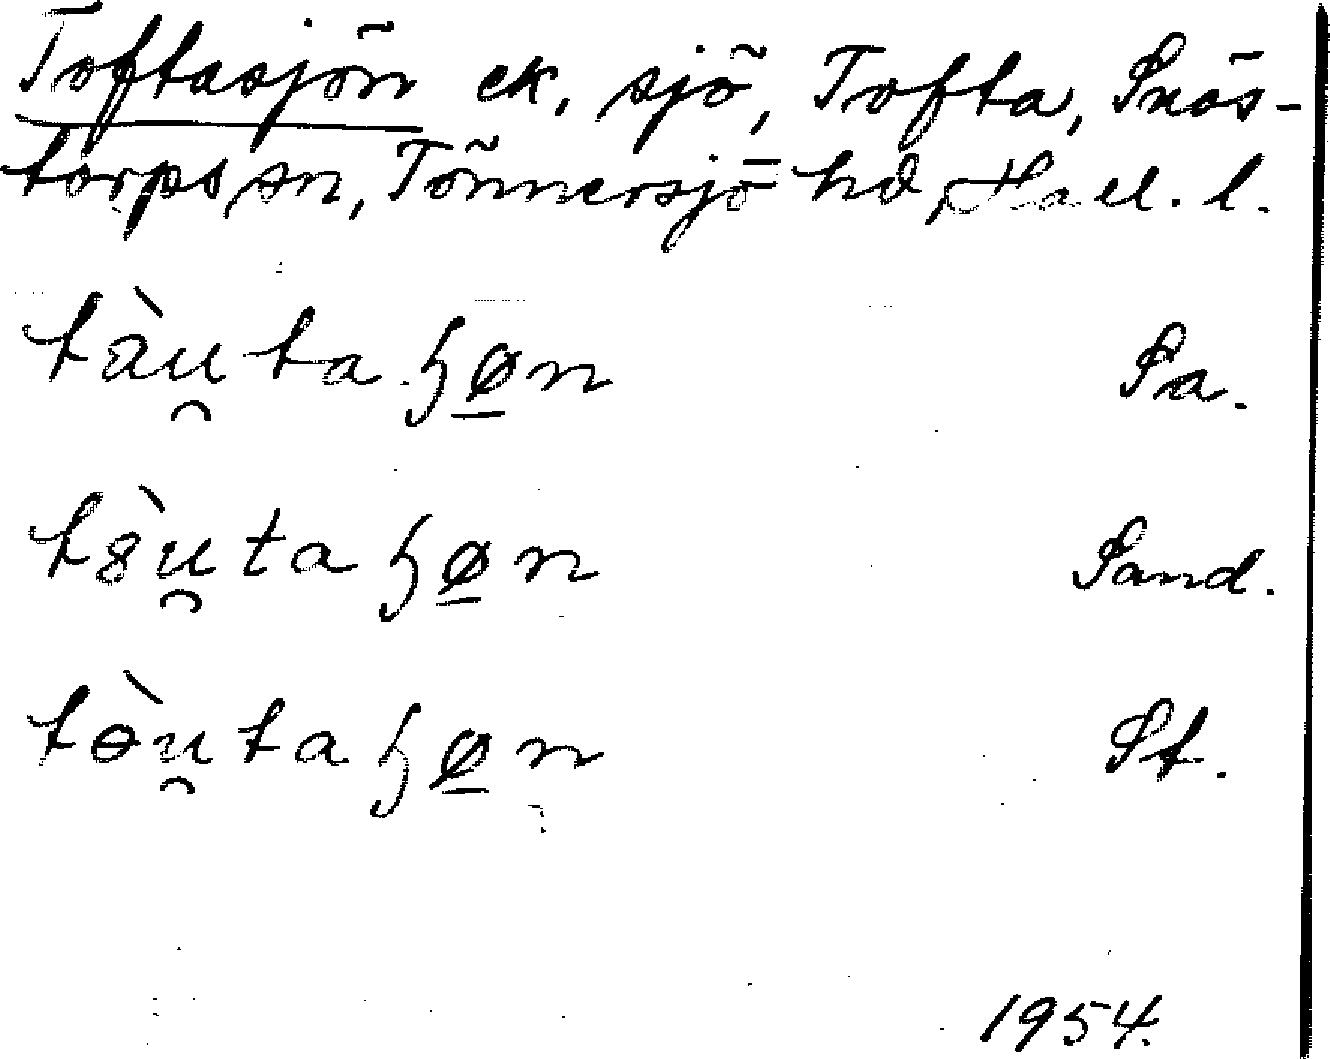 Toftasjön ek. sjö, Tofta, Snös-
torps sn, Tönnersjö hd, Hall. l.
tàu̯taɧø̲n Sa.
tȣ̀u̯taɧø̲n Sand.
tɵ̀u̯taɧø̲n St.
1954.